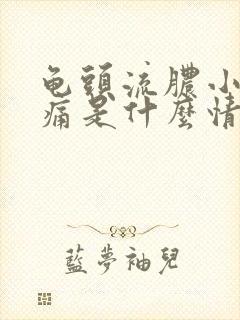 龟頭流膿小
痛是什麼情
藍夢袖兒